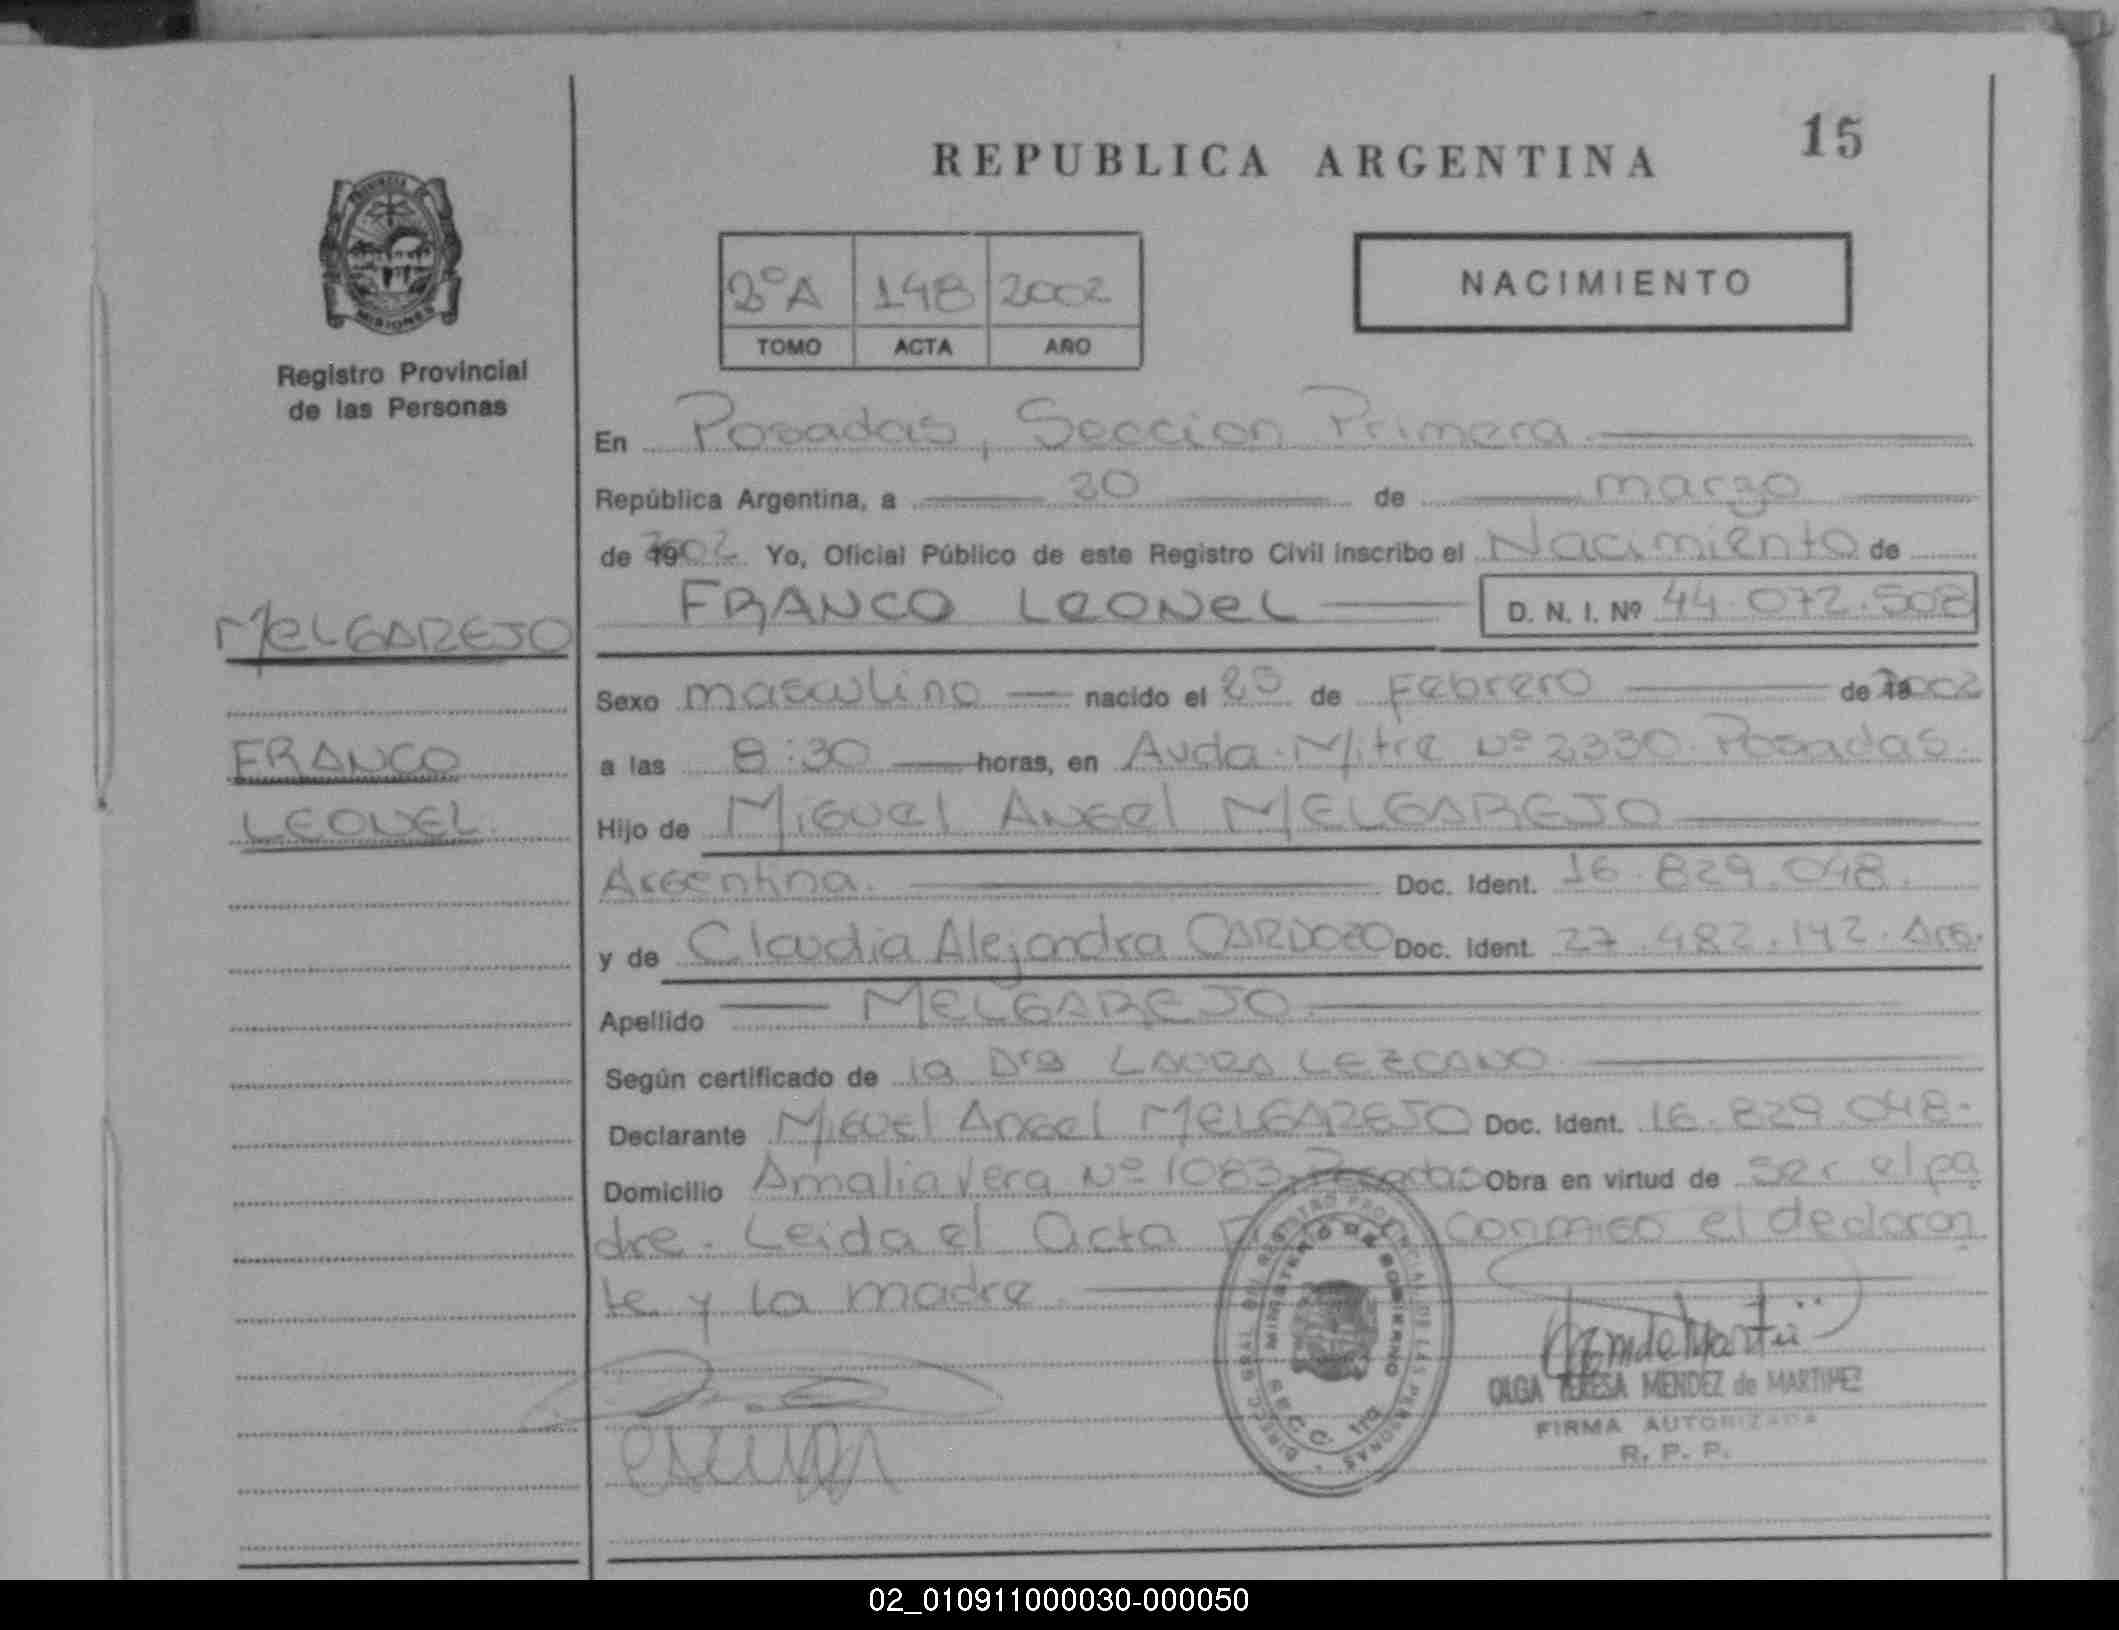 REPUBLICA ARGENTINA
15
PROVINCIA DE
MISIONES
Registro Provincial
de las Personas
2ºA 148 2002
TOMO ACTA AÑO
NACIMIENTO
En Posadas, Seccion Primera
República Argentina, a 20 de marzo
de 2002 Yo, Oficial Público de este Registro Civil inscribo el Nacimiento de
FRANCO LEONEL D. N. I. Nº 44.072.508
MELGAREJO
Sexo masculino nacido el 25 de Febrero de 2002
FRANCO
a las 8:30 horas, en Avda. Mitre Nº 2330. Posadas.
LEONEL.
Hijo de MIGUEL ANGEL MELGAREJO
Argentina. Doc. Ident. 16.829.048.
y de Claudia Alejandra CARDOZO Doc. Ident. 27.482.142. Arg.
Apellido MELGAREJO
Según certificado de la Dra LAURA LEZCANO
Declarante Miguel Angel MELGAREJO Doc. Ident. 16.829.048.
Domicilio Amalia Vera Nº 1083 Posadas Obra en virtud de ser el pa
dre. Leida el acta conmigo el declaran
te y la madre
OLGA TERESA MENDEZ de MARTINEZ
FIRMA AUTORIZADA
R. P. P.
DIREC. GRAL DEL REGISTRO PROVINCIAL DE LAS PERSONAS
MINISTERIO DE GOBIERNO
02_010911000030-000050